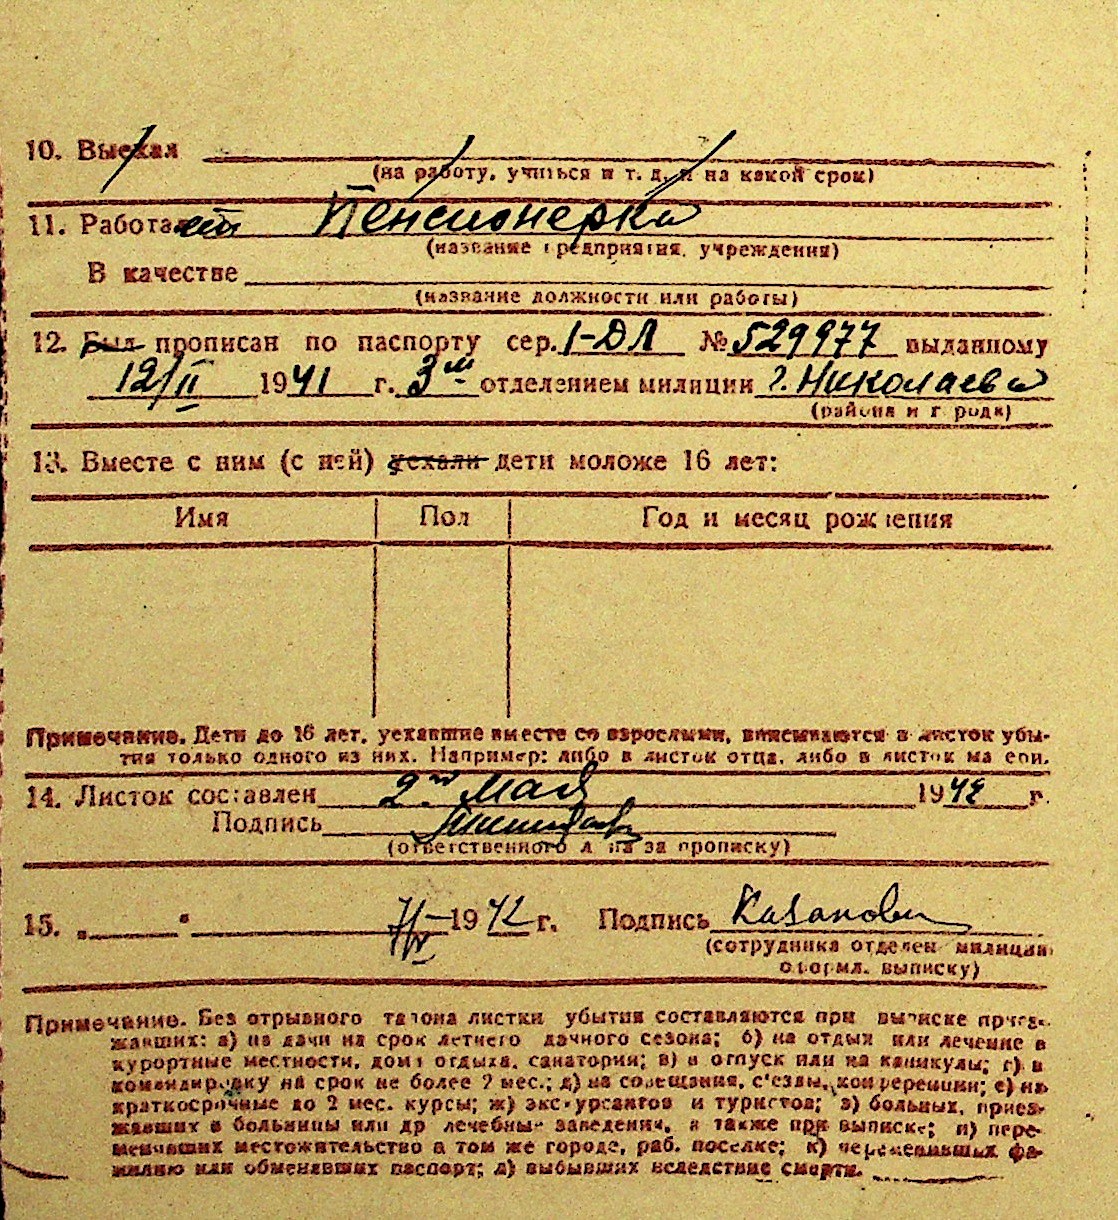 10. Выехал
(на работу, учиться и т. д. и на какой срок)
11. Работает Пенсионерка
(название предприятия, учреждения)
В качестве
(название должности или работы)
12. Был прописан по паспорту сер. I-ДЛ № 529977 выданному
12/II 1941 г. 3м отделением милиции г. Николаева
(района и города)
13. Вместе с ним (с ней) уехали дети моложе 16 лет:
Имя Пол Год и месяц рождения
Примечание. Дети до 16 лет, уехавшие вместе со взрослыми, вписываются в листок убы-
тия только одного из них. Например: либо в листок отца, либо в листок матери.
14. Листок составлен 2го Мая 1942 г.
Подпись
(ответственного лица за прописку)
15. „ " 7/V – 1942 г. Подпись
(сотрудника отделен. милиции
оформл. выписку)
Примечание. Без отрывного талона листки убытия составляются при выписке приез-
жавших: а) на дачи на срок летнего дачного сезона; б) на отдых или лечение в
курортные местности, дома отдыха, санатории; в) в отпуск или на каникулы; г) в
командировку на срок не более 2 мес.; д) на совещания, съезды, конференции; е) на
краткосрочные до 2 мес. курсы; ж) экскурсантов и туристов; з) больных, приез-
жавших в больницы или др лечебные заведения, а также при выписке; и) пере-
менивших местожительство в том же городе, раб. поселке; к) переменивших фа-
милию или обменявших паспорт; л) выбывших вследствие смерти.